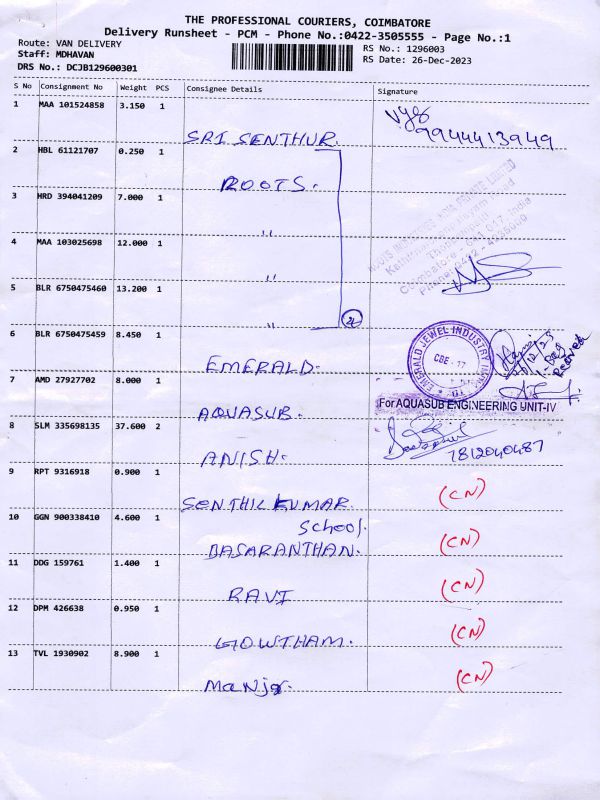 THE PROFESSIONAL COURIERS, COIMBATORE
Delivery Runsheet - PCM - Phone No.:0422-3505555 - Page No.:1
Route: VAN DELIVERY
RS No.: 1296003
Staff: MDHAVAN
RS Date: 26-Dec-2023
DRS No.: DCJB129600301
S No Consignment No Weight PCS Consignee Details Signature
1 MAA 101524858 3.150 1
SRI SENTHUR. 9944413949
2 HBL 61121707 0.250 1
ROOTS.
3 HRD 394041209 7.000 1
"
4 MAA 103025698 12.000 1
"
5 BLR 6750475460 13.200 1
"
6 BLR 6750475459 8.450 1
EMERALD. EMERALD JEWEL INDUSTRY CBE - 17
7 AMD 27927702 8.000 1
For AQUASUB ENGINEERING UNIT-IV
AQUASUB.
8 SLM 335698135 37.600 2
ANISH. 7812040487
9 RPT 9316918 0.900 1
SENTHIL KUMAR (CN)
School.
10 GGN 900338410 4.600 1
DASARANTHAN. (CN)
11 DDG 159761 1.400 1
RAVI (CN)
12 DPM 426638 0.950 1
GOWTHAM. (CN)
13 TVL 1930902 8.900 1
Manju. (CN)